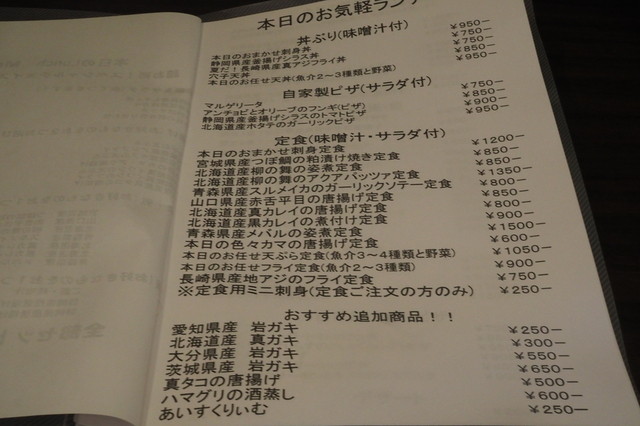 本日のお気軽ランチ
丼ぶり(味噌汁付)
本日のおまかせ刺身丼 ¥950ー
静岡県産釜揚げシラス丼 ¥750ー
夏だ!長崎県産真アジフライ丼 ¥750ー
穴子天丼 ¥850ー
本日のお任せ天丼(魚介2〜3種類と野菜) ¥950ー
自家製ピザ(サラダ付)
マルゲリータ ¥750ー
アンチョビとオリーブのフンギ(ピザ) ¥850ー
静岡県産釜揚げシラスのトマトピザ ¥900ー
北海道産ホタテのガーリックピザ ¥950ー
定食(味噌汁・サラダ付)
本日のおまかせ刺身定食 ¥1200ー
宮城県産つぼ鯛の粕漬け焼き定食 ¥850ー
北海道産柳の舞の姿煮定食 ¥850ー
北海道産柳の舞のアクアパッツァ定食 ¥1350ー
青森県産スルメイカのガーリックソテー定食 ¥800ー
山口県産赤舌平目の唐揚げ定食 ¥850ー
北海道産真カレイの唐揚げ定食 ¥800ー
北海道産黒カレイの煮付け定食 ¥900ー
青森県産メバルの姿煮定食 ¥1500ー
本日の色々カマの唐揚げ定食 ¥600ー
本日のお任せ天ぷら定食(魚介3〜4種類と野菜) ¥1050ー
本日のお任せフライ定食(魚介2〜3種類) ¥900ー
長崎県産地アジのフライ定食 ¥750ー
※定食用ミニ刺身(定食ご注文の方のみ) ¥250ー
おすすめ追加商品!!
愛知県産 岩ガキ ¥250ー
北海道産 真ガキ ¥300ー
大分県産 岩ガキ ¥550ー
茨城県産 岩ガキ ¥650ー
真タコの唐揚げ ¥500ー
ハマグリの酒蒸し ¥600ー
あいすくりぃむ ¥250ー